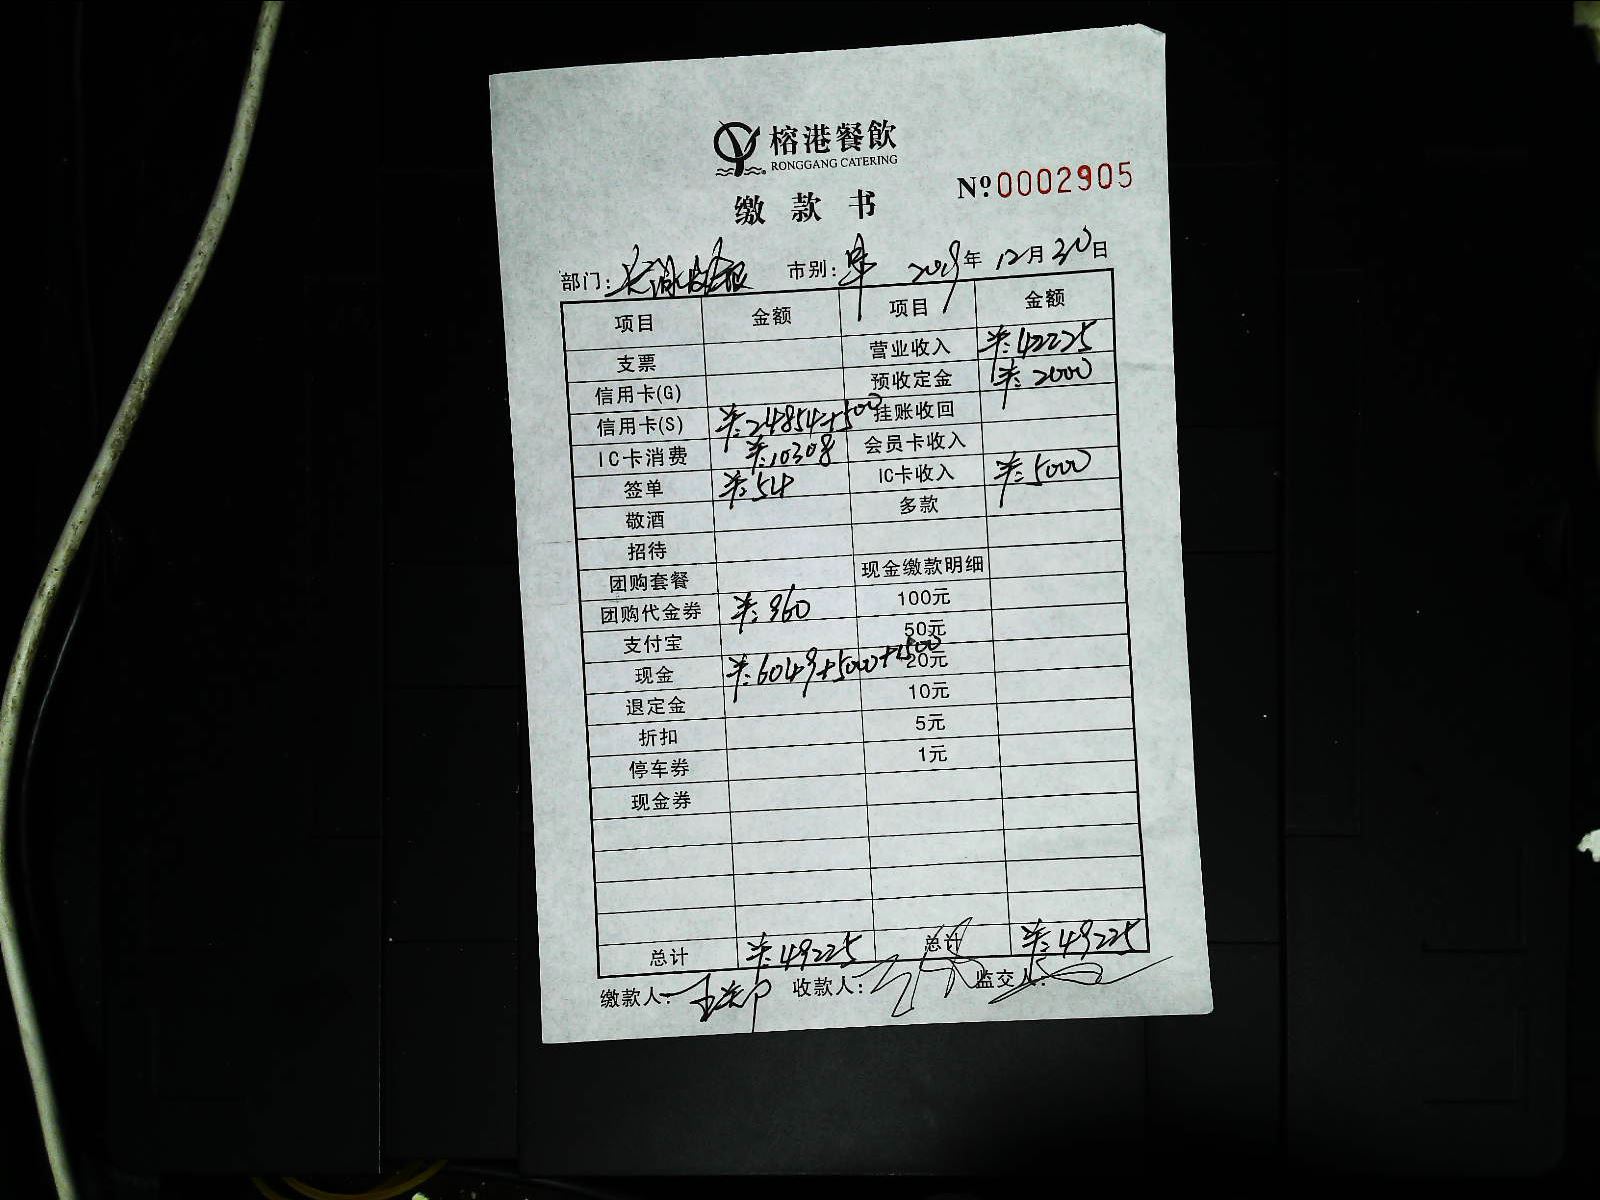 榕港餐飲
RONGGANG CATERING
缴款书
Nº 0002905
部门: 市别: 2019年 12月 30日
项目 金额 项目 金额
支票 营业收入 ¥:42225
信用卡(G) 预收定金 ¥:2000
信用卡(S) ¥:24854+500 挂账收回
IC卡消费 ¥:10308 会员卡收入
签单 ¥:54 IC卡收入 ¥:5000
敬酒 多款
招待
团购套餐 现金缴款明细
团购代金券 ¥:960 100元
支付宝 50元
现金 ¥:6049+5000+1500 20元
退定金 10元
折扣 5元
停车券 1元
现金券
总计 ¥:49225 总计 ¥:49225
缴款人: 收款人: 监交人: